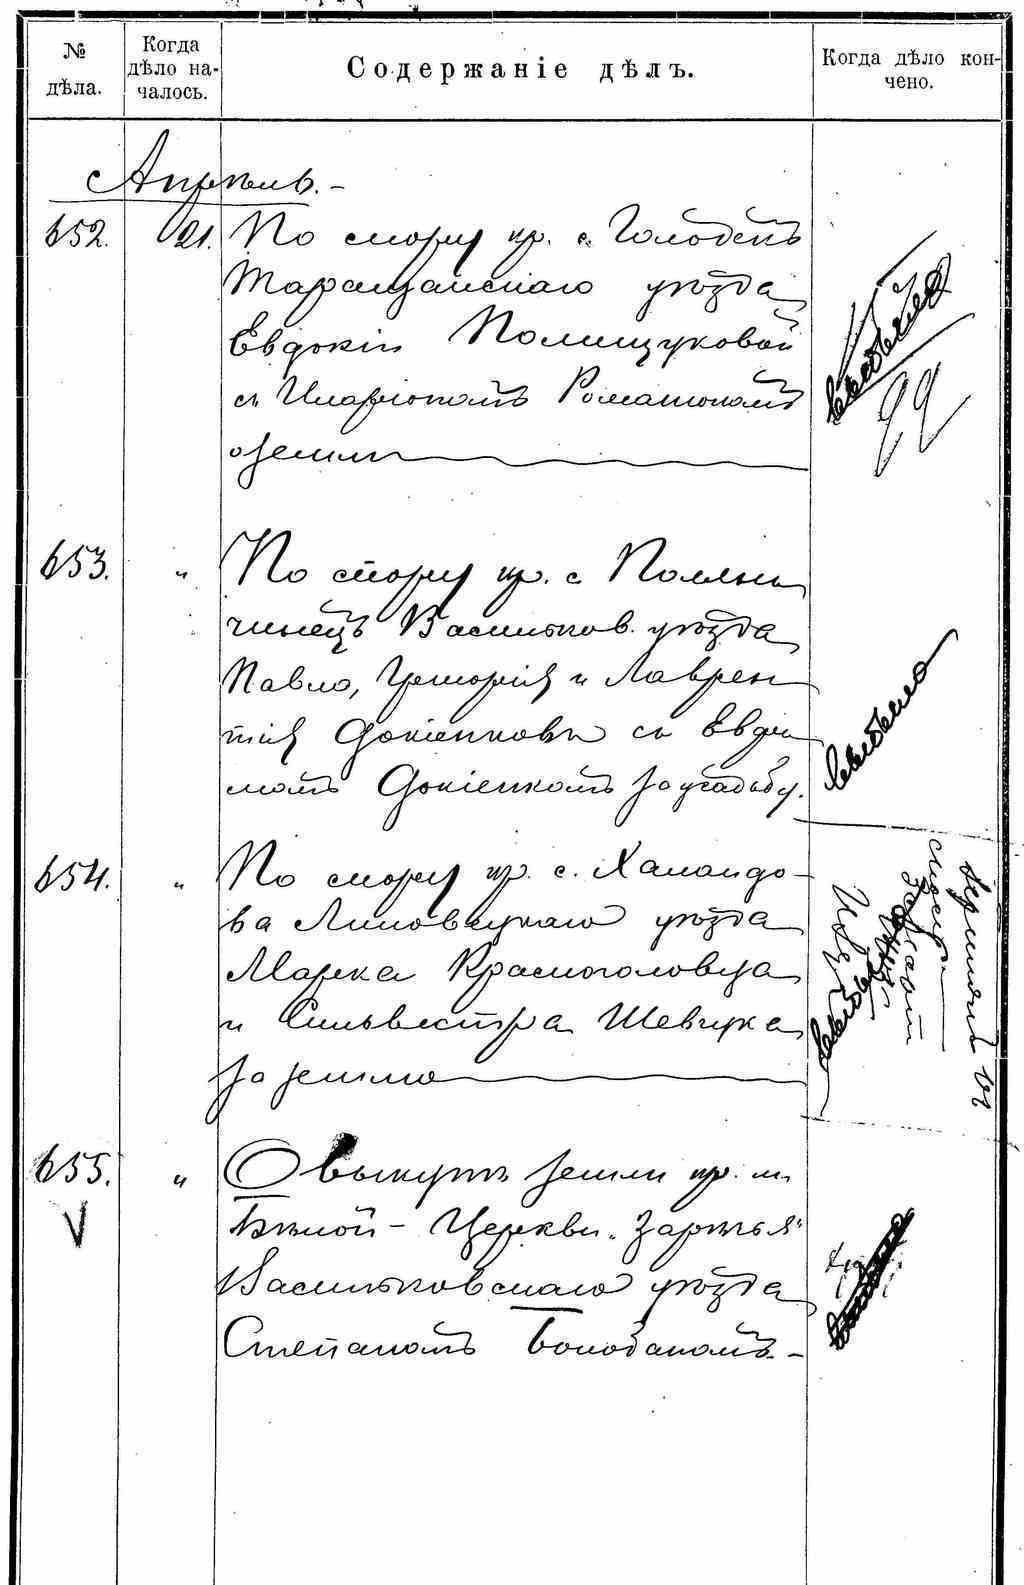 № дѣла.
Когда дѣло на-
чалось.
Содержаніе дѣлъ.
Когда дѣло кон-
чено.
Апрѣль. -
652. 21. По спору кр. с. Голодекъ
Таращанскаго уѣзда
Евдокіи Полищуковой
съ Иларіономъ Романюкомъ
о землѣ
653. " По спору кр. с. Поляни
чинецъ Васильков. уѣзда
Павла, Григорія и Лаврен
тія Докіенковъ съ Евфи
момъ Докіенкомъ за усадьбу.
654. " По спору кр. с. Халаидо-
ва Липовецкаго уѣзда
Марка Красноголовца
и Сильвестра Шевчука
за землю
655. " О выкупѣ земли кр. м.
Бѣлой - Церкви "Зарѣчья"
Васильковскаго уѣзда
Степаномъ Бокобакомъ. -
V